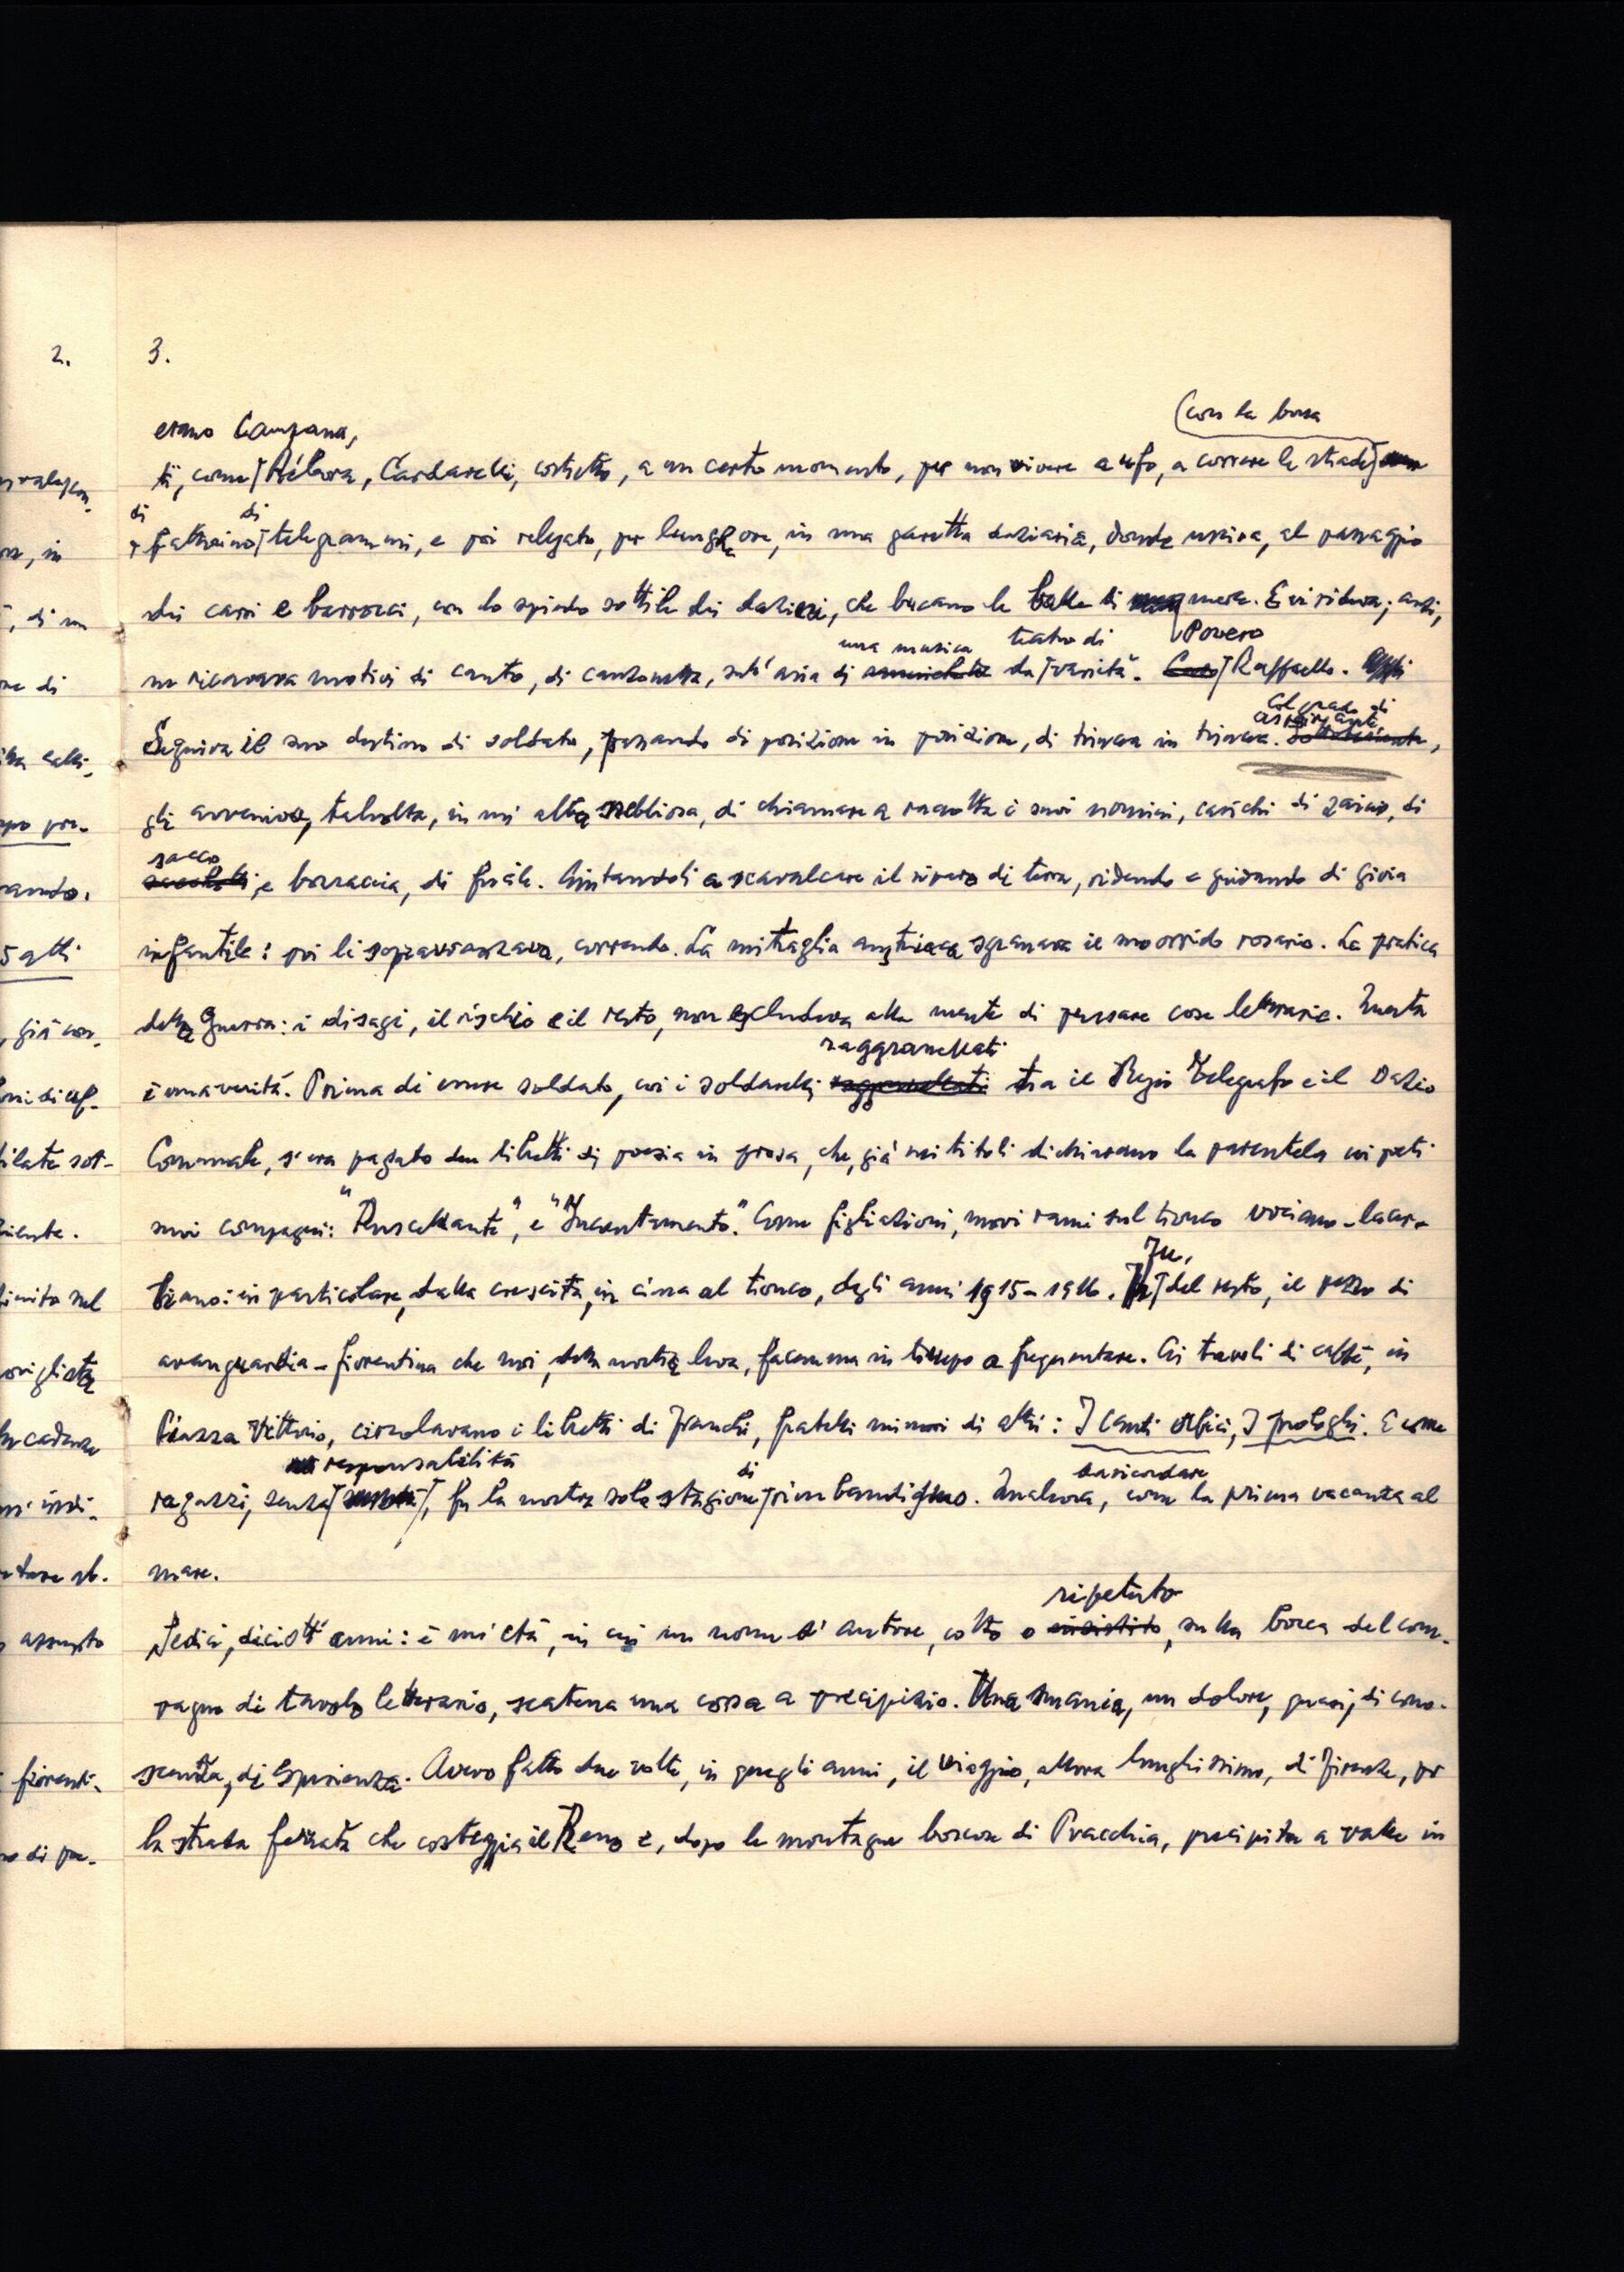 2.
3.
erano Campana,
(con la borsa
ti, come Rébora, Cardarelli, costretto, a un certo momento, per non vivere a ufo, a correre le strade
di
di
fattorino telegrammi, e poi relegato, per lunghe ore, in una garetta daziaria, donde usciva, al passaggio
dei carri e barrocci, con lo spiedo sottile dei dazieri, che bucano le balle di merce. E vi rideva; anzi,
una musica teatro di
Povero
ne ricavava motivi di canto, di canzonetta, sull'aria di da varietà. Caro Raffaello.
col grado di
aspirante
Seguiva il suo destino di soldato, passando di posizione in posizione, di trincea in trincea. Sottotenente,
gli avveniva, talvolta, in un'alba nebbiosa, di chiamare a raccolta i suoi uomini, carichi di zaino, di
sacco
e borraccia, di fucile. Aiutandoli a scavalcare il riparo di terra, ridendo e gridando di gioia
infantile: poi li sopravvanzava, correndo. La mitraglia austriaca sgranava il suo orrido rosario. La pratica
della guerra: i disagi, il rischio e il resto, non escludeva alla mente di pensare cose letterarie. Questa
raggranellati
è una verità. Prima di essere soldato, coi i soldarelli raggranellati tra il Regio Telegrafo e il Dazio
Comunale, s'era pagato due libretti di poesia in prosa, che, già nei titoli dichiarano la parentela coi poeti
suoi compagni: "Ruscellante", e "Incantamento". Come figliazioni, nuovi rami sul tronco vociano-lacer-
biano: in particolare, dalla crescita, in cima al tronco, degli anni 1915-1916.
Fu,
del resto, il pezzo di
avanguardia-fiorentina che noi, della nostra leva, facemmo in tempo a frequentare. Ai tavoli di caffè, in
Piazza Vittorio, circolavano i libretti di Franchi, fratelli minori di altri: I Canti Orfici, I Prologhi. E come
responsabilità
di
da ricordare
ragazzi, senza, fu la nostra sola stagione rimbaudiana. Qualcosa, come la prima vacanza al
mare.
ripetuto
Sedici, diciott'anni: è un'età, in cui un nome d'autore, colto o insistito, sulla bocca del com-
pagno di tavolo letterario, scatena una corsa a precipizio. Una smania, un dolore, quasi, di cono-
scenza, di esperienza. Avevo fatto due volte, in quegli anni, il viaggio, allora lunghissimo, di Firenze, per
la strada ferrata che costeggia il Reno e, dopo le montagne boscose di Pracchia, precipita a valle in